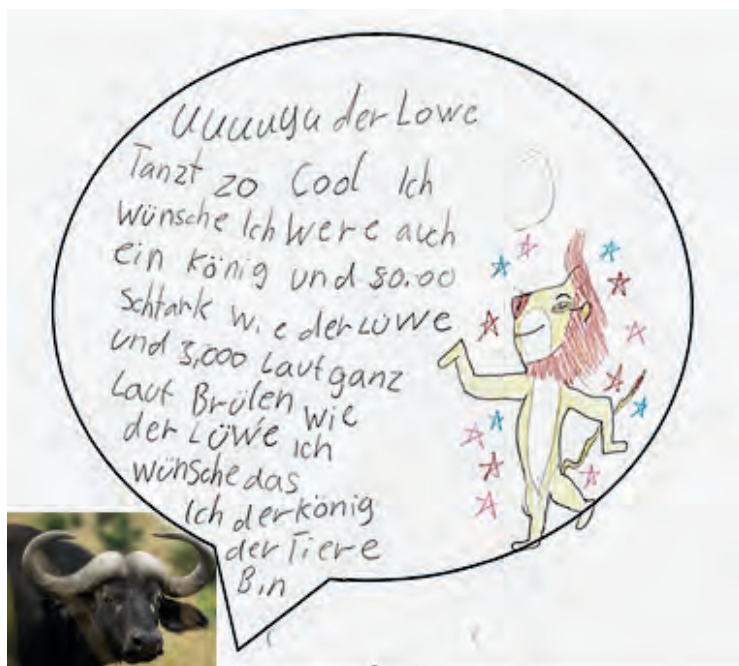 uuuuga der Lowe
Tanzt zo Cool Ich
wünsche Ich Were auch
ein könig und 80.00
Schtark wie der LüWe
und 3,000 Laut ganz
Laut Brülen wie
der LüWe Ich
wünsche das
Ich der könig
der Tiere
Bin